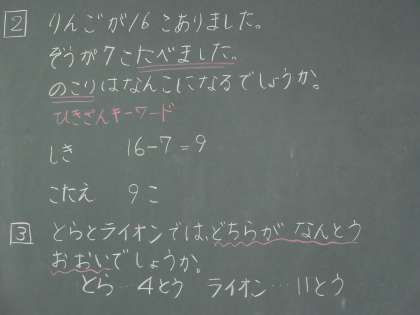 2 りんごが16こありました。
ぞうが7こたべました。
のこりはなんこになるでしょうか。
ひきざんキーワード
しき 16-7=9
こたえ 9こ
3 とらとライオンでは、どちらが なんとう
おおいでしょうか。
とら…4とう ライオン…11とう